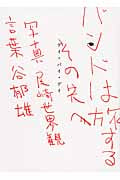 バンドは旅する
その先へ
写真 尾崎世界観
言葉 谷郁雄